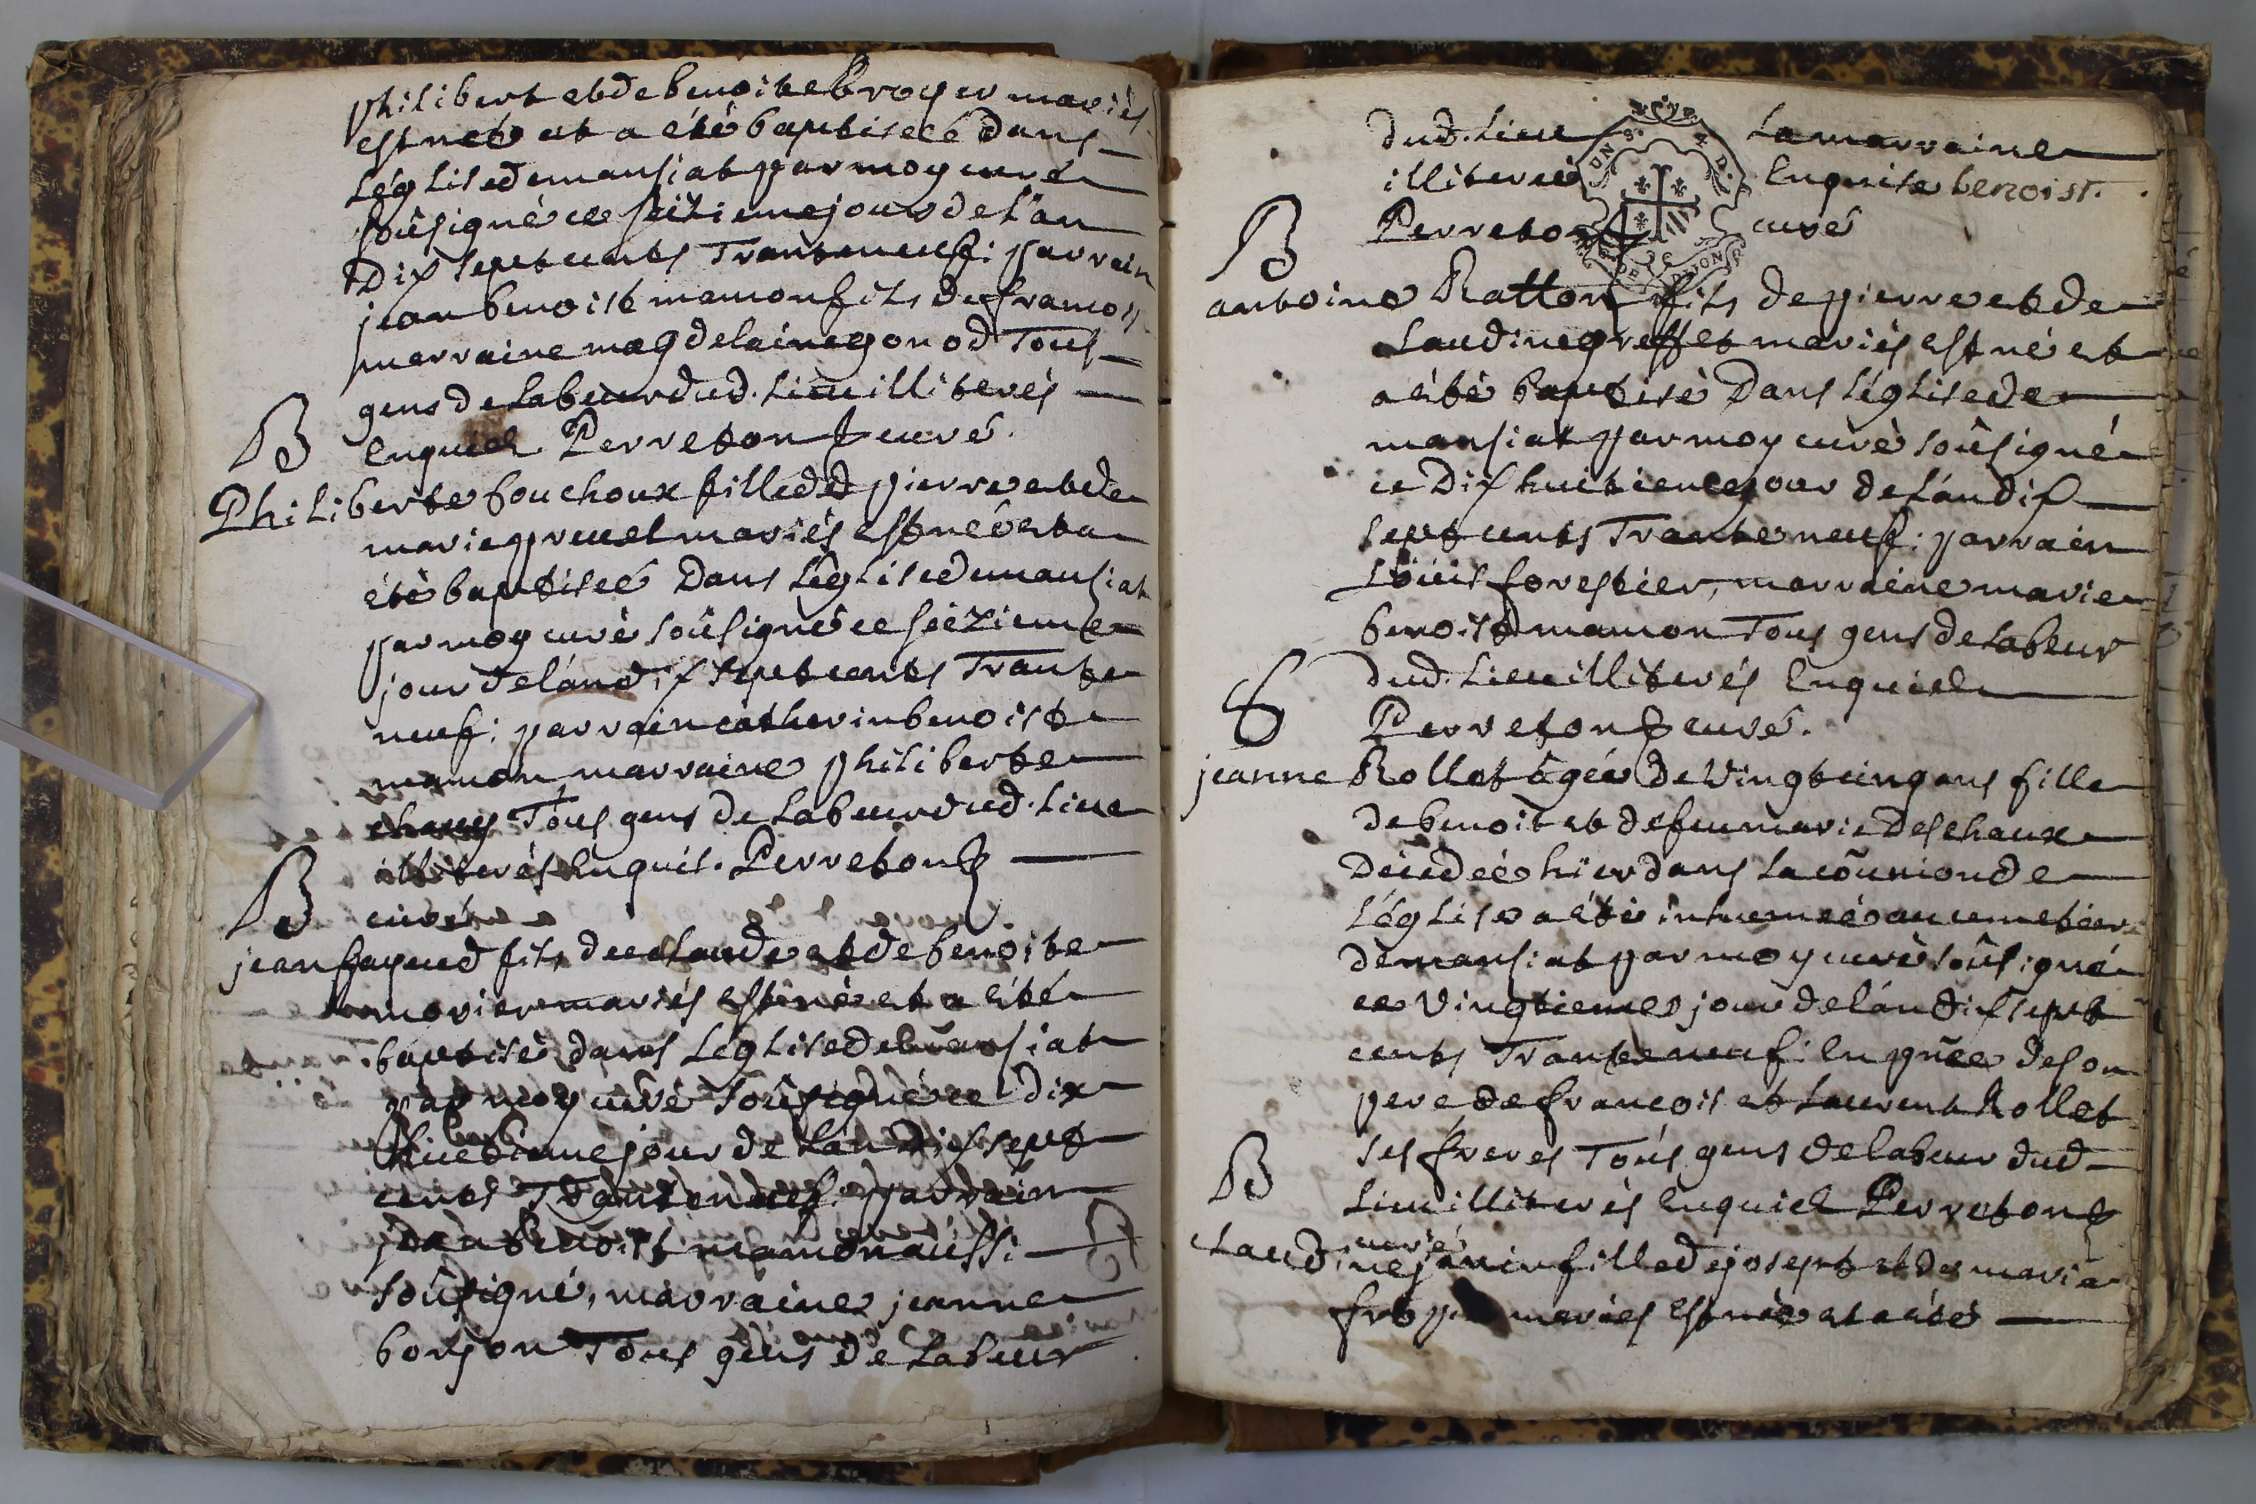 philibert et de benoite broyer mariés
est neé et a été baptiseé dans
léglise de mansiat par moy curé
soûsigné ce seizieme jour de l'an
Dix sept cents Trante neuf: parrain
jean benoist mamon fils de francois
marraine magdelaine gonod Tous
gens de labeur dud. lieu illiterés
Enquis Perreton curé.
B
Philiberte bouchoux fille de pierre et de
marie pruel mariés est neé et a
été baptiseé Dans léglise de mansiat
par moy curé soûsigné ce séizieme
jour de lán dix sept cents Trante
neuf: parrain catherin benoist
mamon, marraine philiberte
Tous gens de labeur dud. lieu
illiterés Enquis. Perreton
curé
B
jean fayeud fils de claude et de benoite
morier mariés est né et a été
baptisé dans léglise de mansiat
par moy curé soûsigné ce dix
huitieme jour de lán Dix sept
cents Trante neuf: parrain
jean benoist mamon aussi
soûsigné, marraine jeanne
bonjon Tous gens de labeur
dud. lieu La marraine
illiterée Enquise benoist.
Perreton curé
B
antoine Ratton fils de pierre et de
claudine greffet mariés est né et
a été baptisé Dans léglise de
mansiat par moy curé soûsigné
ce Dix huitieme jour de lán dix
sept cents Trante neuf: parrain
Loüis forestier, marraine marie
benoist mamon Tous gens de labeur
dud. lieu illiterés Enquis
Perreton curé.
jeanne Rollet âgeé de vingt cinq ans fille
de benoit et de feu marie Deschaux
Décedeé hier dans la coũnion de
l'église a été inhumeé au cemetiere
de mansiat par moy curé soûsigné
ce vingtieme jour de lán dix sept
cents Trante neuf: En pñce de son
pere de francois et Laurent Rollet
ses freres Tous gens de labeur dud
lieu illiterés Enquis Perreton
curé
B
claudine janin fille de joseph et de marie
mariés est neé et a été